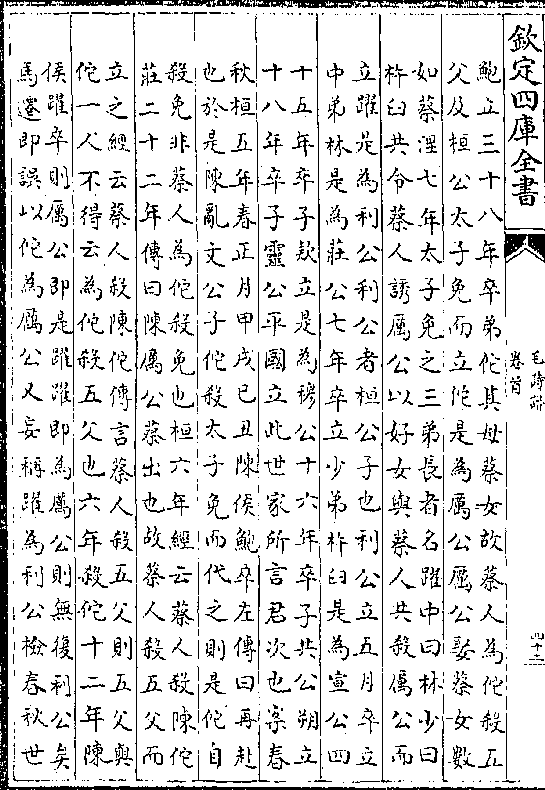 欽定四庫全書
毛詩疏
卷首
四十二
鮑立三十八年卒弟佗其母蔡女故蔡人為佗殺五
父及桓公太子免而立佗是為厲公厲公娶蔡女數
如蔡淫七年太子免之三弟長者名躍中曰林少曰
杵臼共令蔡人誘厲公以好女與蔡人共殺厲公而
立躍是為利公利公者桓公子也利公立五月卒立
中弟林是為莊公七年卒立少弟杵臼是為宣公四
十五年卒子欵立是為穆公十六年卒子共公朔立
十八年卒子靈公平國立此世家所言君次也案春
秋桓五年春正月甲戌己丑陳侯鮑卒左傳曰再赴
也於是陳亂文公子佗殺太子免而代之則是佗自
殺免非蔡人為佗殺免也桓六年經云蔡人殺陳佗
莊二十二年傳曰陳厲公蔡出也故蔡人殺五父而
立之經云蔡人殺陳佗傳言蔡人殺五父則五父與
佗一人不得云為佗殺五父也六年殺佗十二年陳
侯躍卒則厲公即是躍躍即為厲公則無復利公矣
馬遷即誤以佗為厲公又妄稱躍為利公檢春秋世